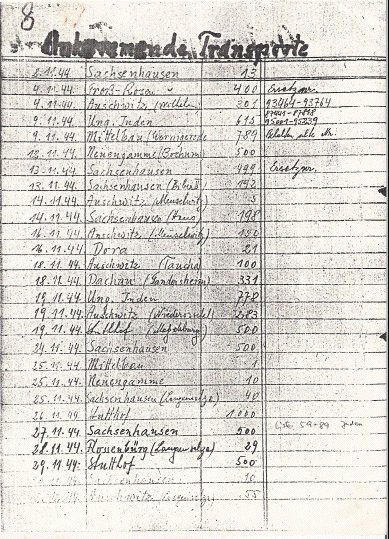 8
Ankommende Transporte
2.11.44 Sachsenhausen 13
4.11.44 Groß-Rosen 400 Ersatznr.
4.11.44 Auschwitz 301 93464-93764
9.11.44 Ung. Juden 615 95001-95239
9.11.44 Mittelbau (Wernigerode 789
12.11.44 Neuengamme (Bochum) 500
13.11.44 Sachsenhausen 499 Ersatznr.
13.11.44 Sachsenhausen
14.11.44 Auschwitz (Meuselwitz)
14.11.44 Sachsenhausen 198
16.11.44 Auschwitz (Meuselwitz) 150
16.11.44 Dora 21
18.11.44 Auschwitz (Taucha) 100
18.11.44 Dachau (Gandersheim) 331
19.11.44 Ung. Juden 778
19.11.44 Auschwitz 283
19.11.44 Stutthof (Magdeburg) 500
24.11.44 Sachsenhausen 500
25.11.44 Mittelbau 1
25.11.44 Neuengamme 10
25.11.44 Sachsenhausen (Langensalza) 40
26.11.44 Stutthof 1.000
27.11.44 Sachsenhausen 500 Juden
28.11.44 Flossenbürg (Langensalza) 29
29.11.44 Stutthof 500
Sachsenhausen
Auschwitz 55